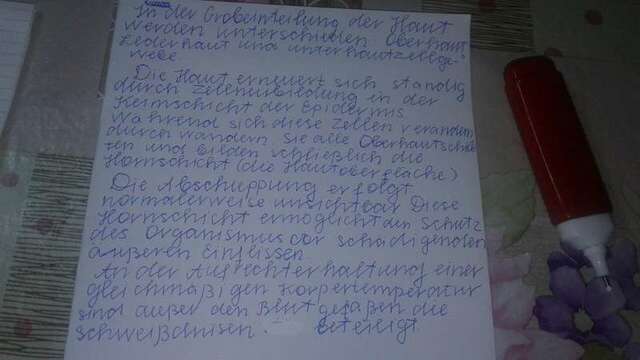 In der Grobeinteilung der Haut
werden unterschieden Oberhaut
Lederhaut und unterhautzellge-
webe
Die Haut erneuert sich ständig
durch Zellneubildung in der
Keimschicht der Epidermis.
Während sich diese Zellen verändern
durchwandern Sie alle Oberhautschich
ten und bilden schließlich die
Hornschicht (die Hautoberfläche)
Die Abschuppung erfolgt
normalerweise unsichtbar Diese
Hornschicht ermöglicht den Schutz
des Organismus vor schädigenden
äußeren Einflissen.
An der Aufrechterhaltung einer
gleichmäßigen Körpertemperatur
sind außer den Blutgefäßen die
schweißdrüsen beteiligt